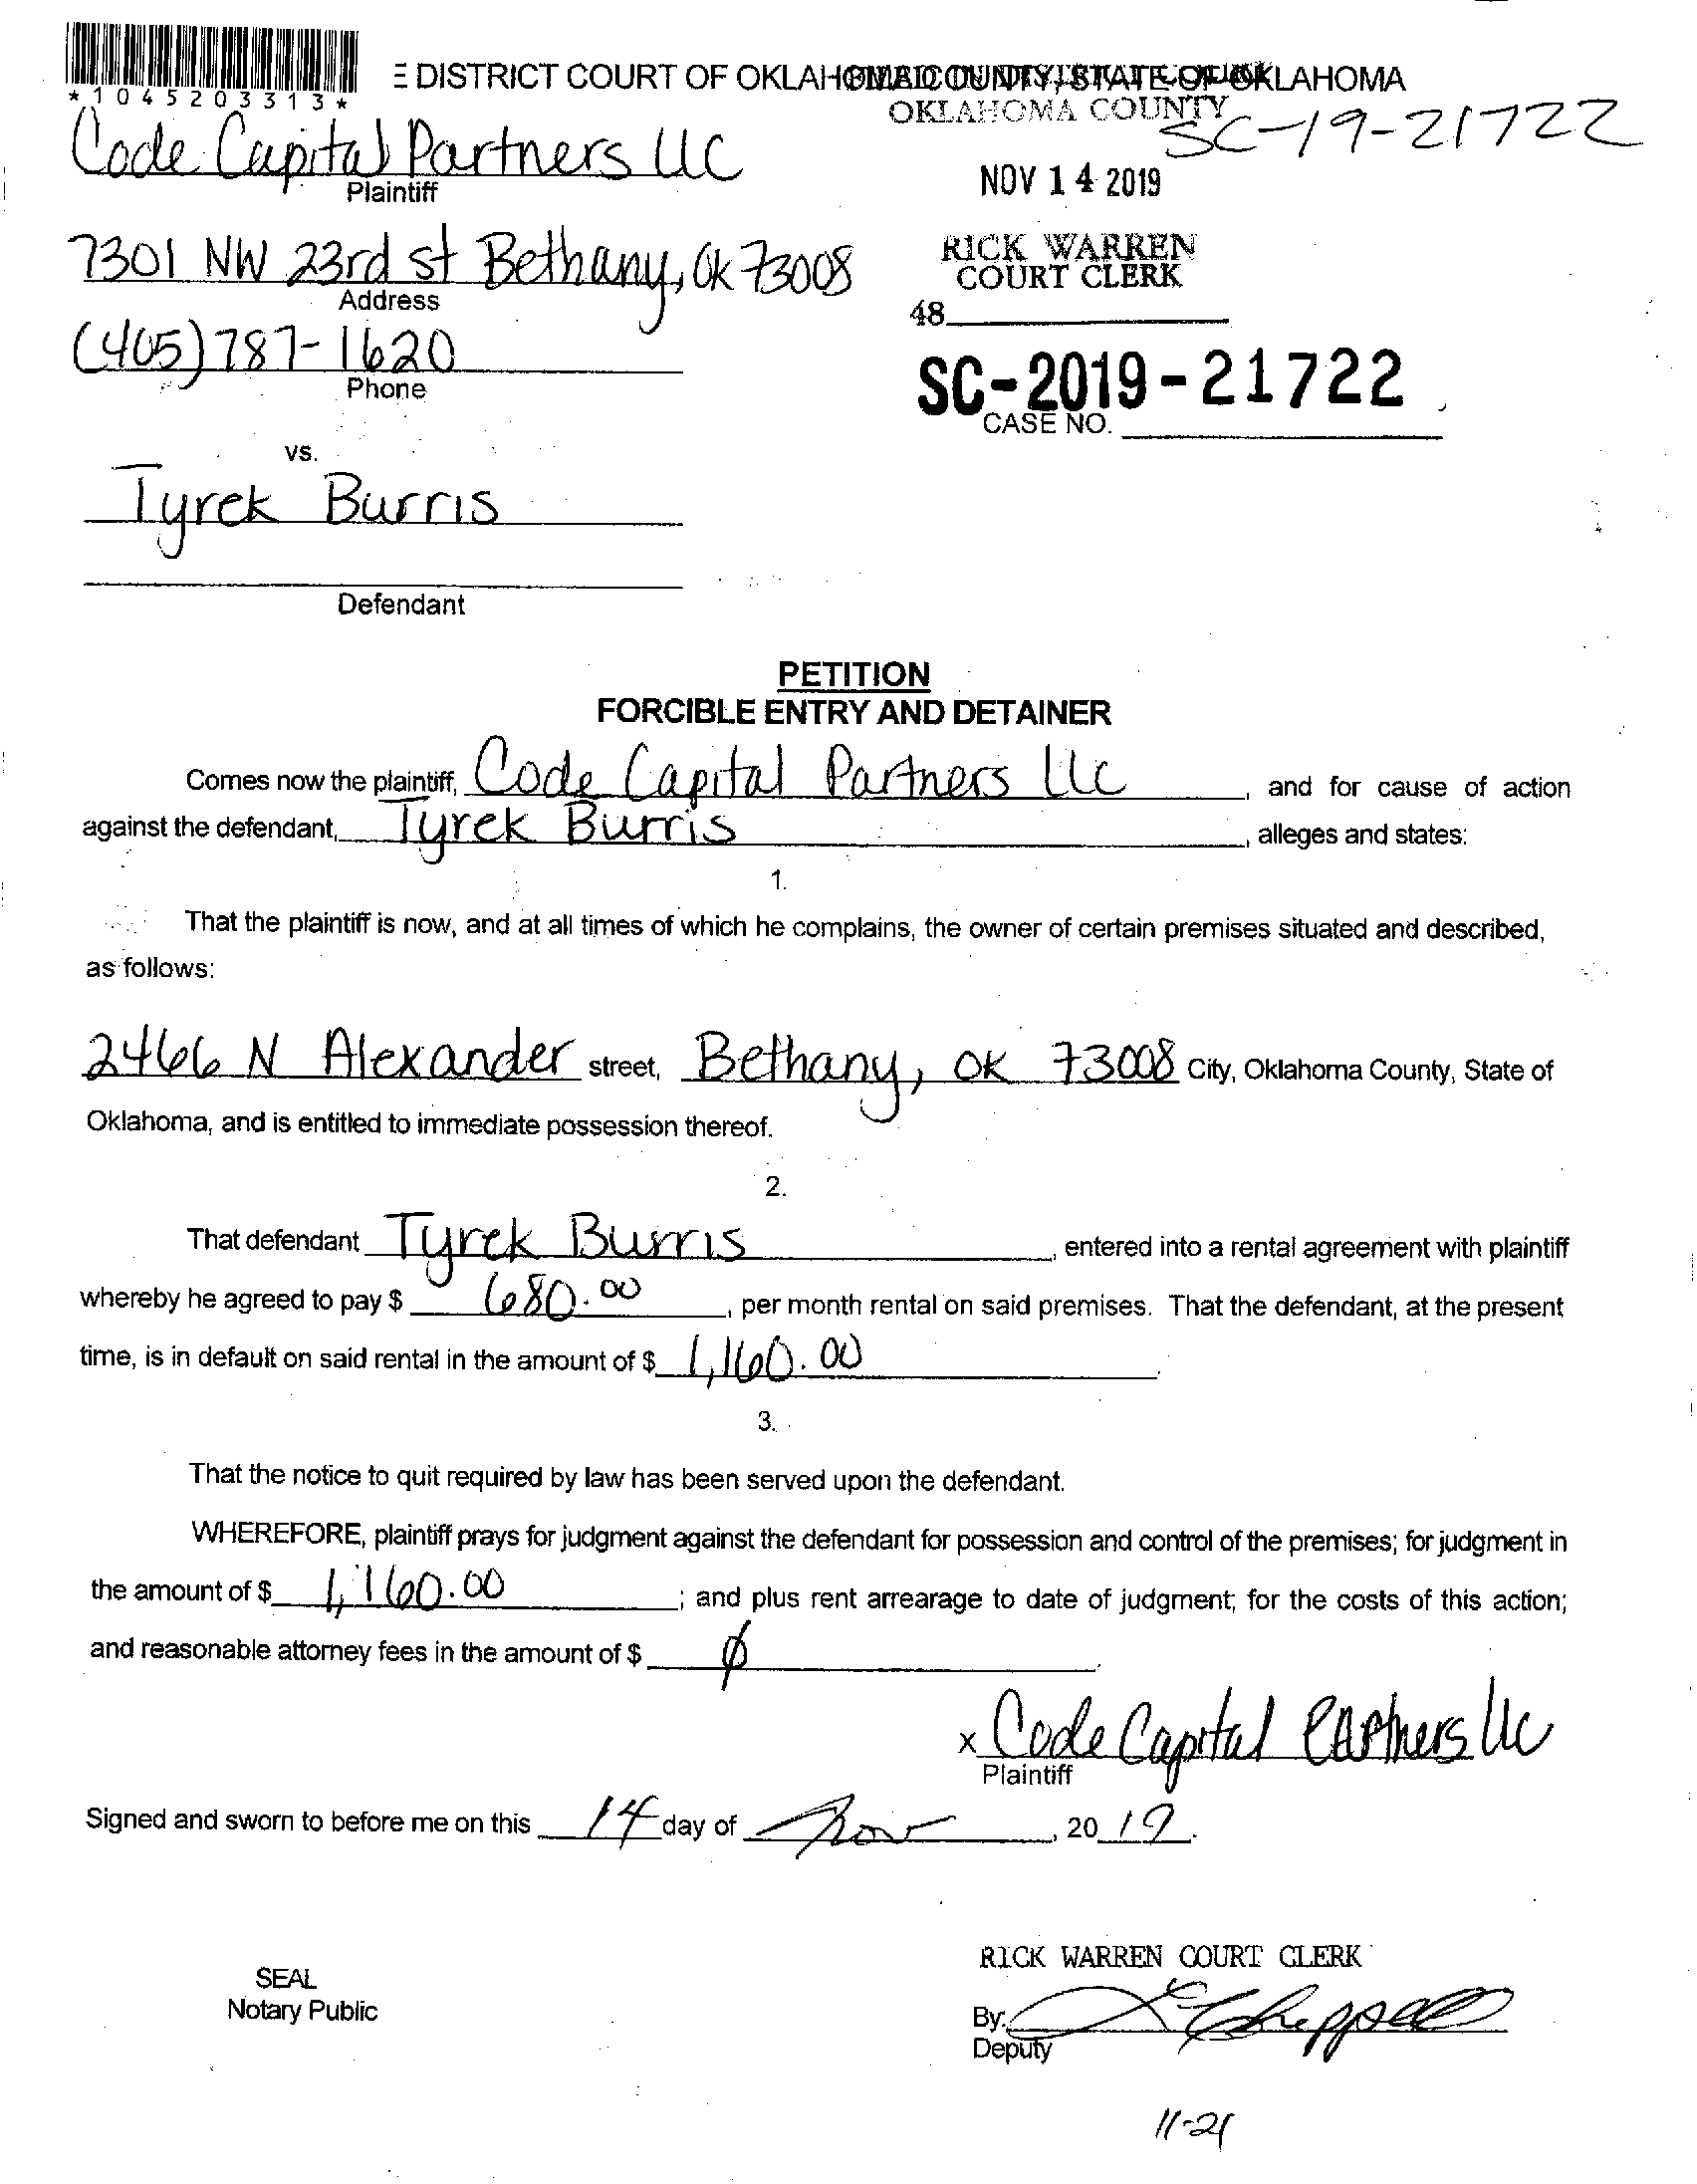 *1045203313*
DISTRICT COURT OF OKLAHOMA COUNTY, STATE OF OKLAHOMA
OKLAHOMA COUNTY
SC-19-21722
Code Capital Partners LLC
Plaintiff
NOV 14 2019
7301 NW 23rd st Bethany, Ok 73008
Address
RICK WARREN
COURT CLERK
48
(405) 787-1620
Phone
SC-2019-21722
CASE NO.
vs.
Tyrek Burris
Defendant
PETITION
FORCIBLE ENTRY AND DETAINER
Comes now the plaintiff, Code Capital Partners LLC, and for cause of action
against the defendant, Tyrek Burris, alleges and states:
1.
That the plaintiff is now, and at all times of which he complains, the owner of certain premises situated and described,
as follows:
2466 N Alexander street, Bethany, OK 73008 City, Oklahoma County, State of
Oklahoma, and is entitled to immediate possession thereof.
2.
That defendant Tyrek Burris, entered into a rental agreement with plaintiff
whereby he agreed to pay $ 680.00, per month rental on said premises. That the defendant, at the present
time, is in default on said rental in the amount of $ 1,160.00.
3.
That the notice to quit required by law has been served upon the defendant.
WHEREFORE, plaintiff prays for judgment against the defendant for possession and control of the premises; for judgment in
the amount of $ 1,160.00; and plus rent arrearage to date of judgment; for the costs of this action;
and reasonable attorney fees in the amount of $ ∅.
x Code Capital Partners llc
Plaintiff
Signed and sworn to before me on this 14 day of Nov, 20 19.
RICK WARREN COURT CLERK
SEAL
Notary Public
By:
Deputy
11-21